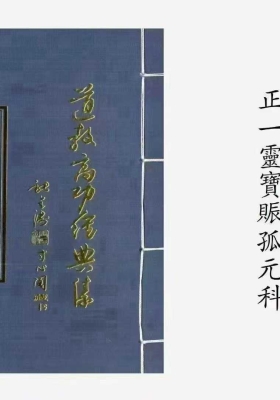 正一靈寶賑孤元科
道教高功經典集